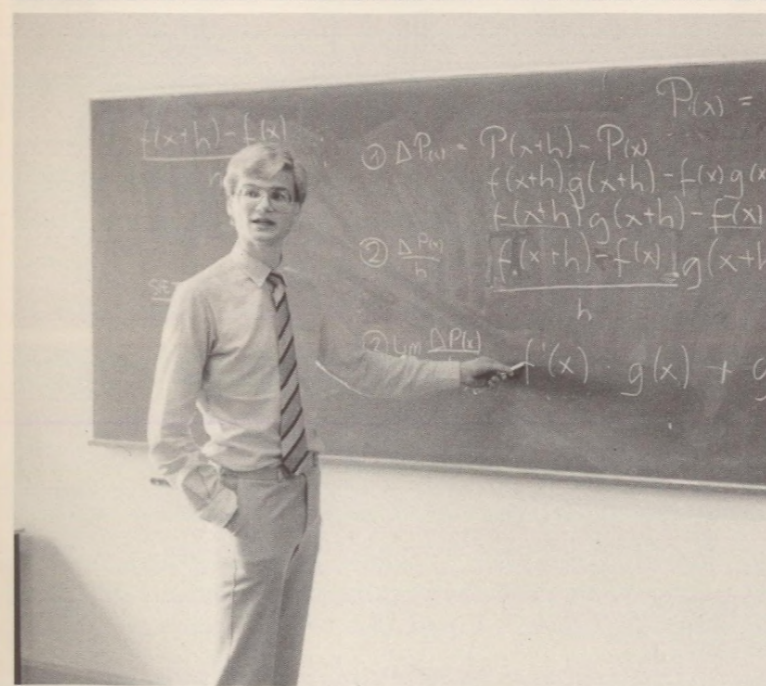 P(x) =
f(x+h) - f(x)
① ΔP(x) = P(x+h) - P(x)
f(x+h) g(x+h) - f(x) g(x
f(x+h) g(x+h) - f(x)
② ΔP(x)
h
f(x+h) - f(x) g(x+h
h
Lim ΔP(x)
f'(x) · g(x) + g